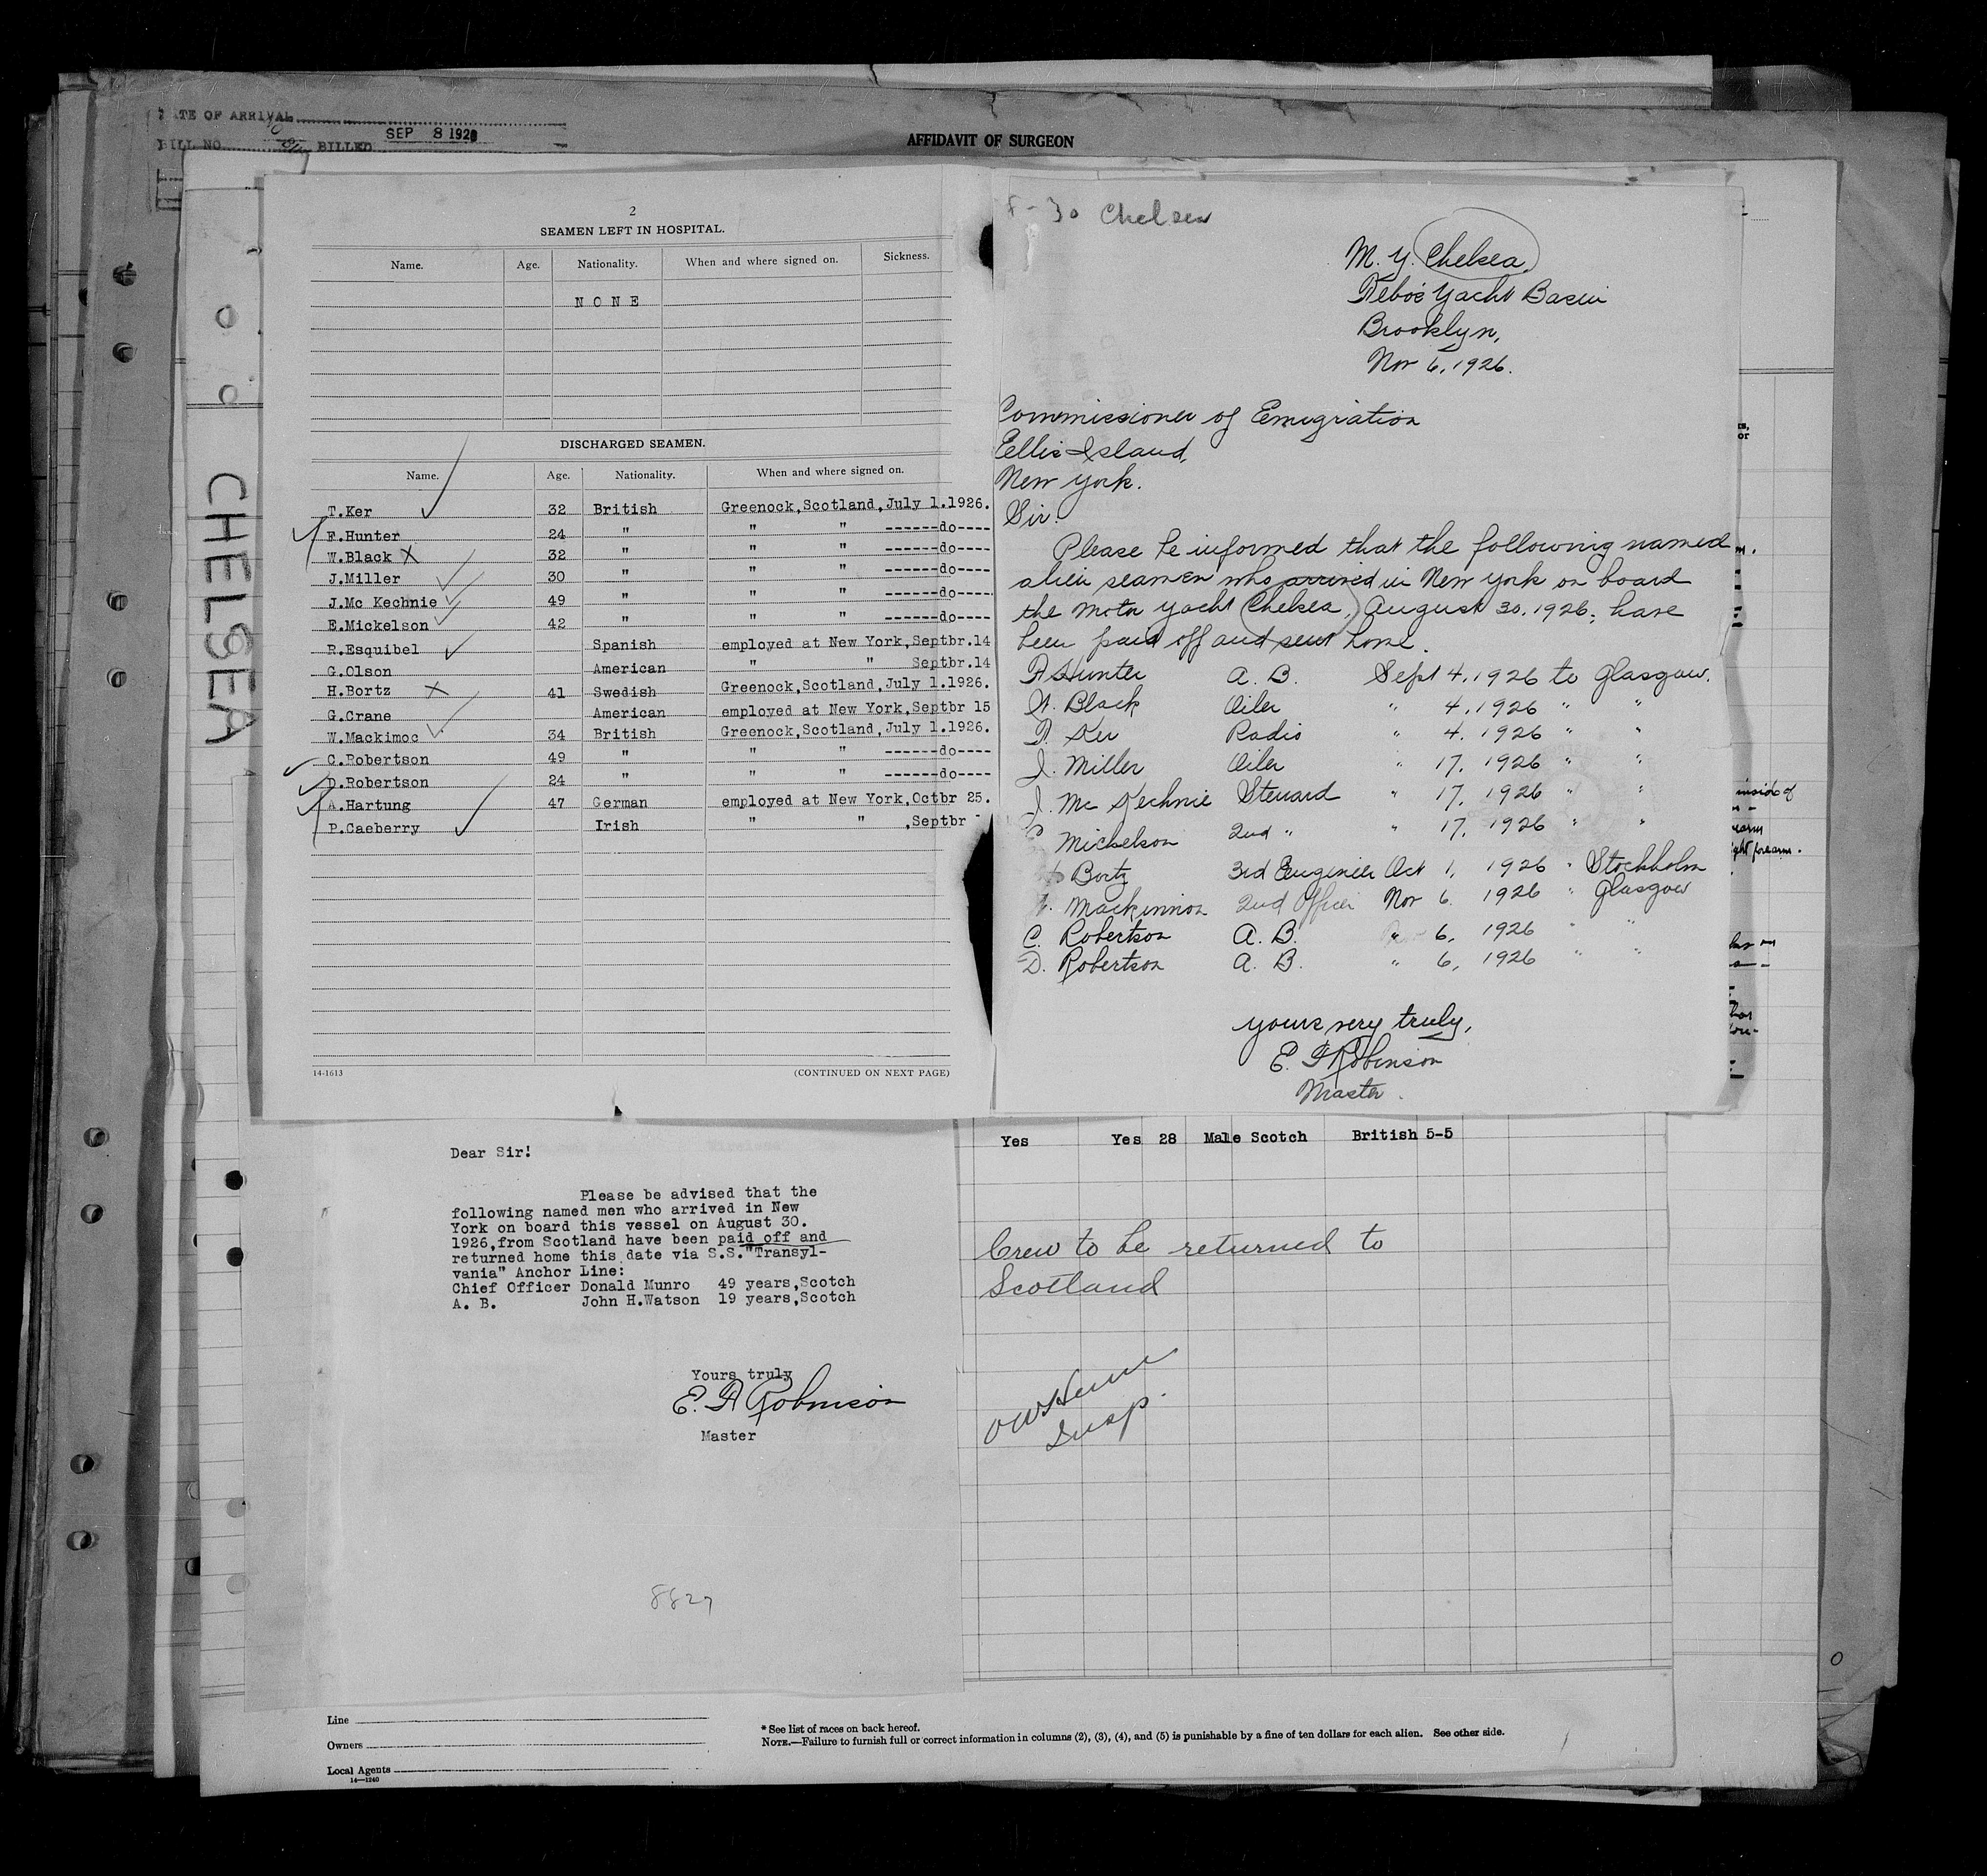 DATE OF ARRIVAL
SEP 8 1926
BILL NO. BILLED
AFFIDAVIT OF SURGEON
CHELSEA
2
SEAMEN LEFT IN HOSPITAL.
Name. Age. Nationality. When and where signed on. Sickness.
NONE
DISCHARGED SEAMEN.
Name. Age. Nationality. When and where signed on.
T.Ker 32 British Greenock,Scotland,July 1.1926.
F.Hunter 24 " " " ------do----
W.Black X 32 " " " ------do----
J.Miller 30 " " " ------do----
J.Mc Kechnie 49 " " " ------do----
E.Mickelson 42 " " " ------do----
R.Esquibel Spanish employed at New York,Septbr.14
G.Olson American " " Septbr.14
H.Bortz X 41 Swedish Greenock,Scotland,July 1.1926.
G.Crane American employed at New York,Septbr 15
W.Mackimoc 34 British Greenock,Scotland,July 1.1926.
C.Robertson 49 " " " ------do----
D.Robertson 24 " " " ------do----
A.Hartung 47 German employed at New York,Octbr 25.
P.Caeberry Irish " " ,Septbr
14-1613 (CONTINUED ON NEXT PAGE)
8-30 Chelsea
M. Y. Chelsea,
Tebo's Yacht Basin
Brooklyn,
Nov 6, 1926.
Commissioner of Emigration
Ellis Island,
New York.
Sir:
Please be informed that the following named
alien seamen who arrived in New York on board
the motor yacht Chelsea, August 30. 1926, have
been paid off and sent home.
F Hunter A. B. Sept 4, 1926 to Glasgow.
W. Black Oiler " 4, 1926 " "
T. Ker Radio " 4. 1926 " "
J. Miller Oiler " 17. 1926 " "
J. Mc Kechnie Steward " 17, 1926 " "
E Mickelson 2nd " " 17, 1926 " "
Bortz 3rd Engineer Oct 1, 1926 " Stockholm
Mackinnon 2nd Officer Nov 6. 1926 " Glasgow
C. Robertson A. B. " 6, 1926 " "
D. Robertson A. B. " 6, 1926 " "
Yours very truly,
E. F Robinson
Master.
inside of
ght forearm.
Yes Yes 28 Male Scotch British 5-5
Crew to be returned to
Scotland
Insp.
Dear Sir!
Please be advised that the
following named men who arrived in New
York on board this vessel on August 30.
1926,from Scotland have been paid off and
returned home this date via S.S."Transyl-
vania" Anchor Line:
Chief Officer Donald Munro 49 years,Scotch
A. B. John H.Watson 19 years,Scotch
Yours truly
E. F Robinson
Master
8827
Line
Owners
Local Agents
14—1240
* See list of races on back hereof.
NOTE.—Failure to furnish full or correct information in columns (2), (3), (4), and (5) is punishable by a fine of ten dollars for each alien. See other side.